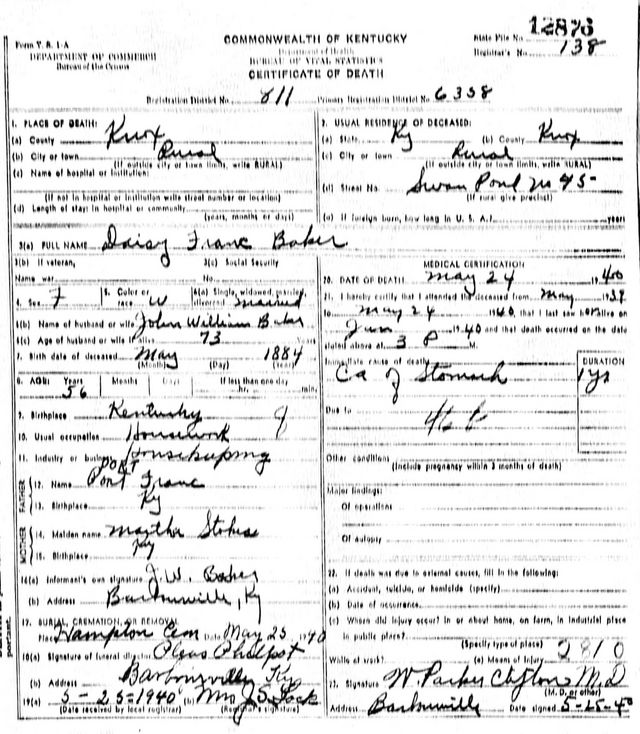 12876
Form V. S. 1-A
DEPARTMENT OF COMMERCE
Bureau of the Census
COMMONWEALTH OF KENTUCKY
Department of Health
BUREAU OF VITAL STATISTICS
CERTIFICATE OF DEATH
State File No.
Registrar's No. 138
Registration District No. 811 Primary Registration District No. 6358
1. PLACE OF DEATH:
(a) County Knox
(b) City or town Rural
(If outside city or town limits, write RURAL)
(c) Name of hospital or institution:
(If not in hospital or institution write street number or location)
(d) Length of stay: In hospital or community
(years, months or days)
2. USUAL RESIDENCE OF DECEASED:
(a) State Ky (b) County Knox
(c) City or town Rural
(If outside city or town limits, write RURAL)
(d) Street No. Swan Pond no 45
(If rural give precinct)
(e) If foreign born, how long in U. S. A.? years
3(a) FULL NAME Daisy Franc Baker
3(b) If veteran,
Name war
3(c) Social Security
No.
4. Sex F
5. Color or race W
6(a) Single, widowed, married, divorced married
6(b) Name of husband or wife John William Baker
6(c) Age of husband or wife if alive 73
7. Birth date of deceased May 1884
(Month) (Day) (Year)
8. AGE: Years Months Days If less than one day
56 hr. min.
9. Birthplace Kentucky
10. Usual occupation Housework
11. Industry or business Housekeeping
PORT
FATHER
12. Name Port Franc
13. Birthplace Ky
MOTHER
14. Maiden name Martha Stokes
15. Birthplace Ky
16(a) Informant's own signature J. W. Baker
(b) Address Barbourville, Ky
17. BURIAL, CREMATION, OR REMOVAL
Place Hampton Cem Date May 25 1940
18(a) Signature of funeral director
(b) Address Barbourville Ky
19(a) 5-25-1940 (b) Mrs J. S. Lock
(Date received by local registrar) (Registrar's signature)
MEDICAL CERTIFICATION
20. DATE OF DEATH May 24 1940
21. I hereby certify that I attended the deceased from May 1939
to May 24 1940, that I last saw her alive on
Jan 1940 and that death occurred on the date
stated above at 3 P M.
Immediate cause of death DURATION
Ca of Stomach 1 yr
Due to 46 b
Other conditions
(Include pregnancy within 3 months of death)
Major findings:
Of operations
Of autopsy
22. If death was due to external causes, fill in the following:
(a) Accident, suicide, or homicide (specify)
(b) Date of occurrence
(c) Where did injury occur? In or about home, on farm, in industrial place
in public place?
(Specify type of place)
2810
While at work? (e) Means of injury
23. Signature W Parker Clifton M.D
(M.D. or other)
Address Barbourville Date signed 5-25-40
portant.